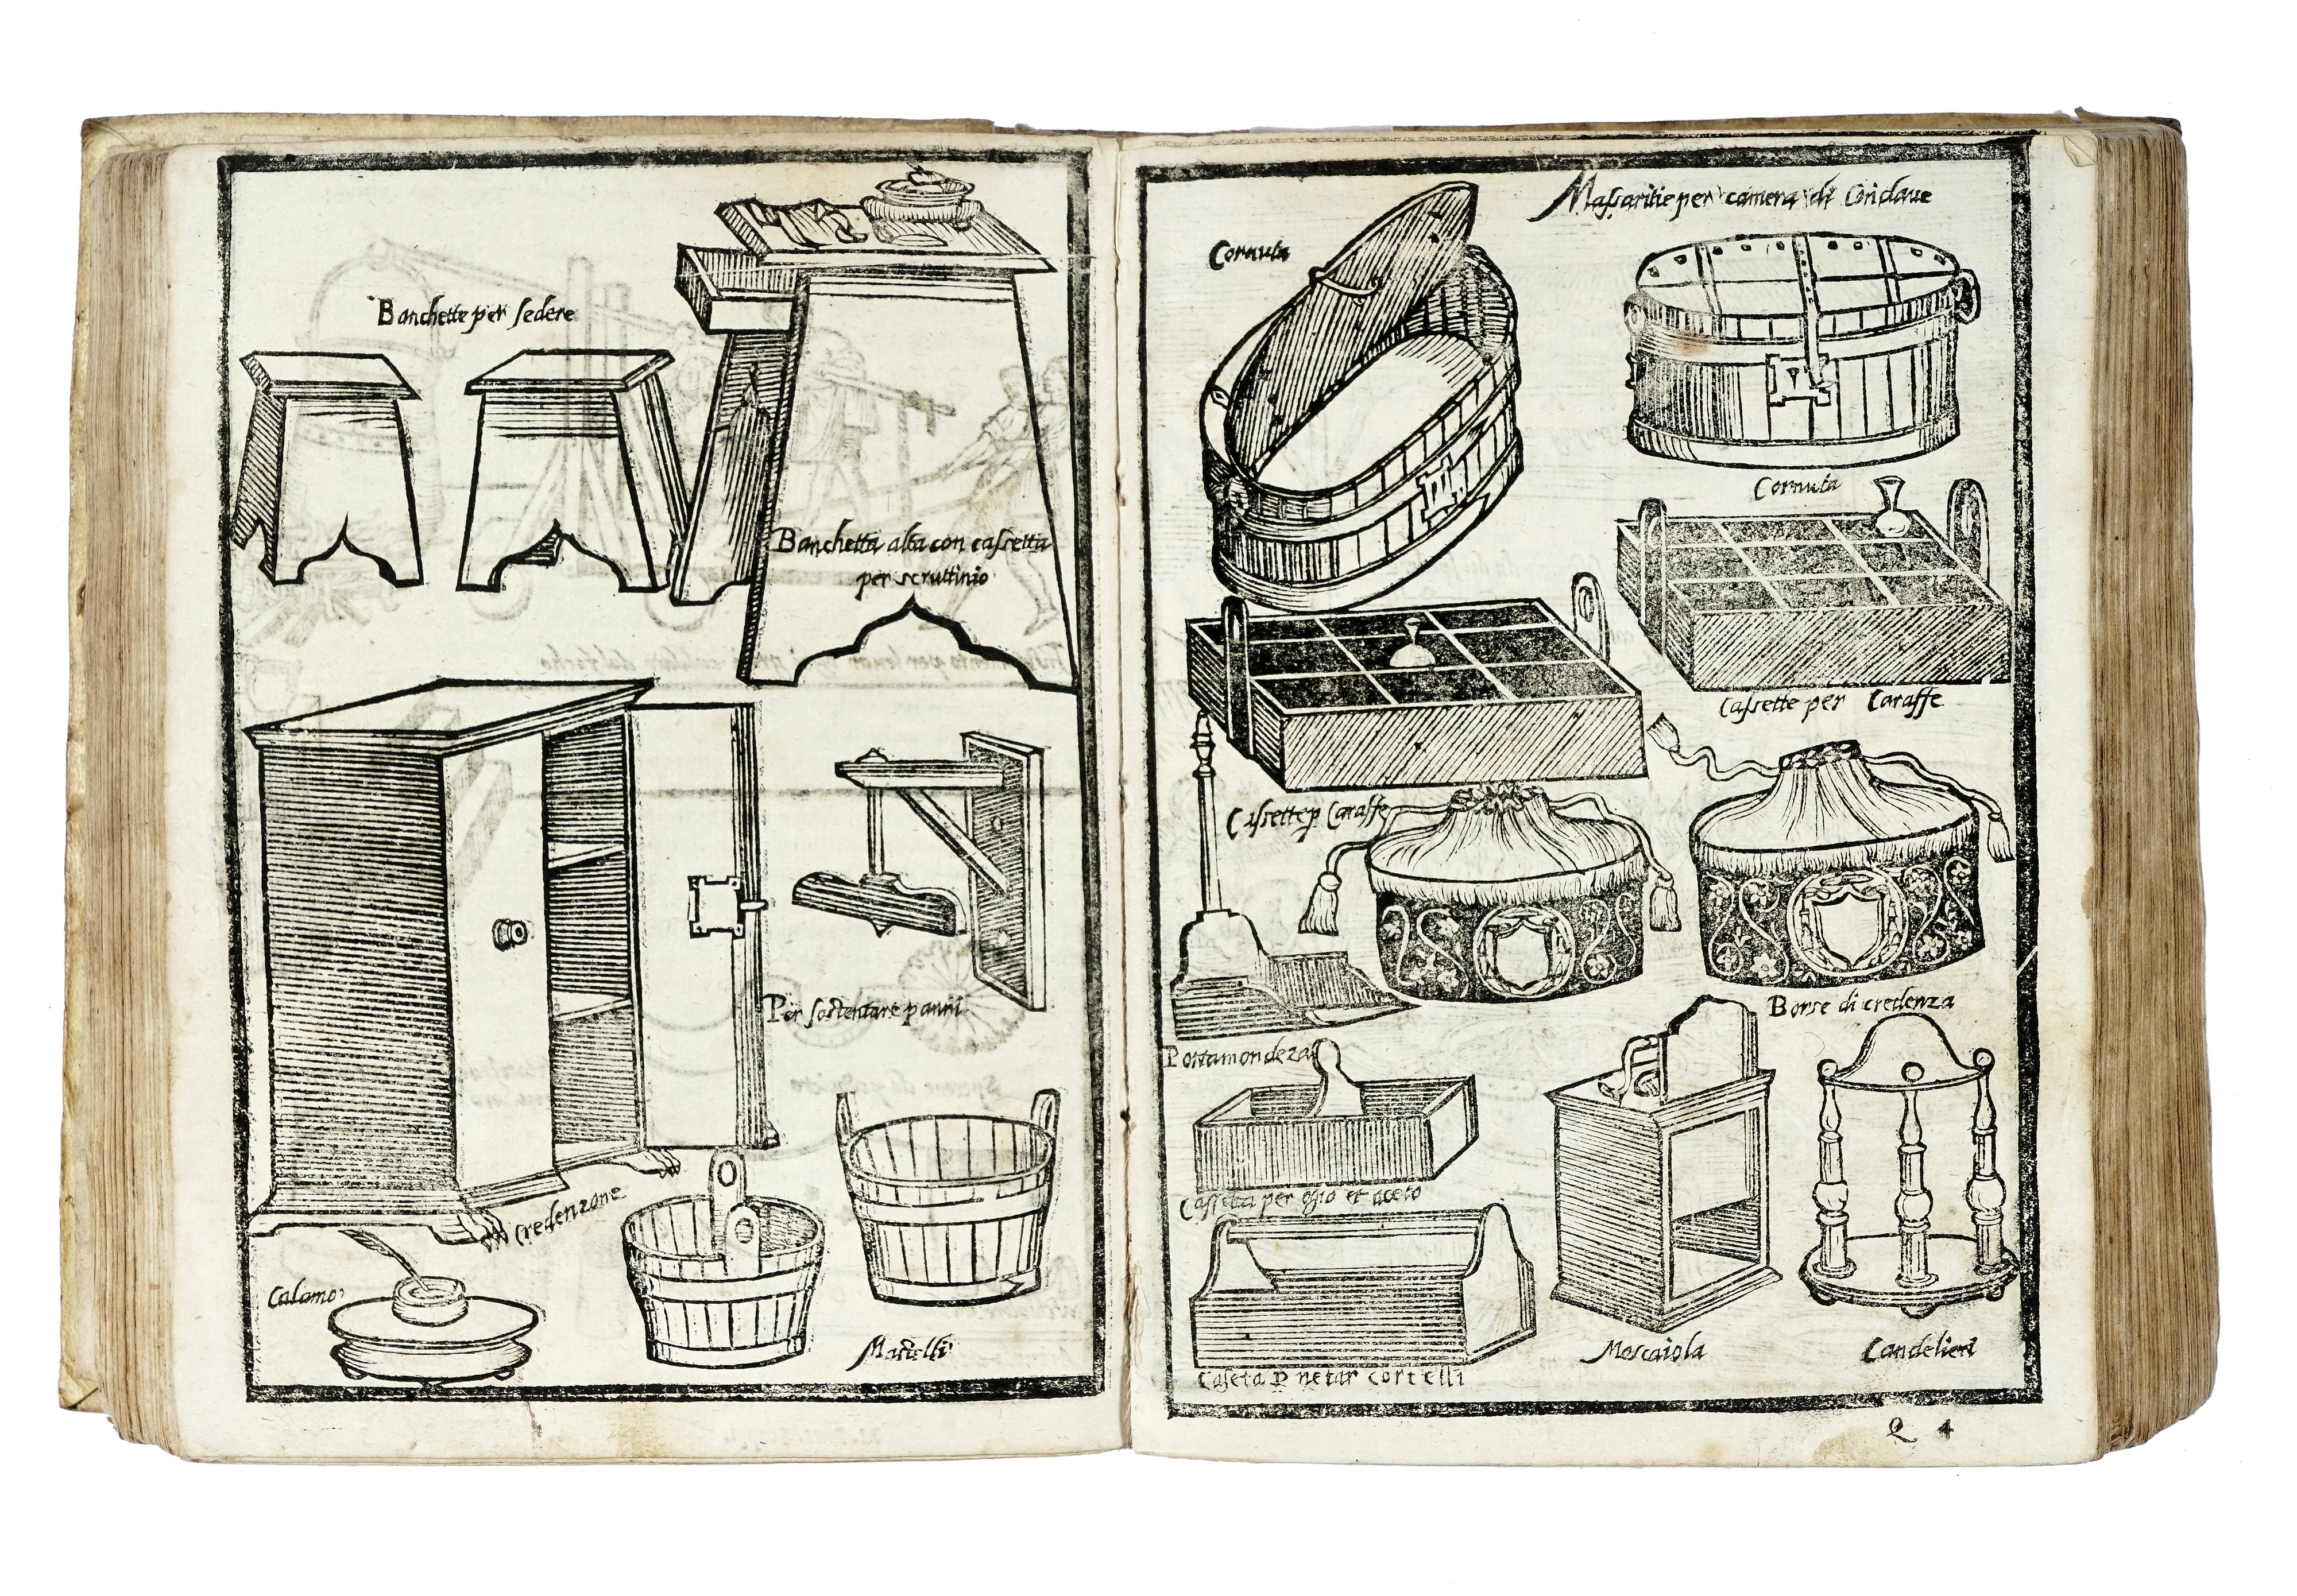 Banchette per sedere
Banchetta alta con cassetta
per scruttinio
Per sostentare panni
Credenzone
Calamo
Mastelli
Massaritie per camera di Conclaue
Cornuta
Cornuta
Cassette per Caraffe
Cassette p Caraffe
Borse di credenza
Portamondeza
Cassetta per ogio et aceto
Moscaiola
Candelieri
Caseta P netar cortelli
Q 4